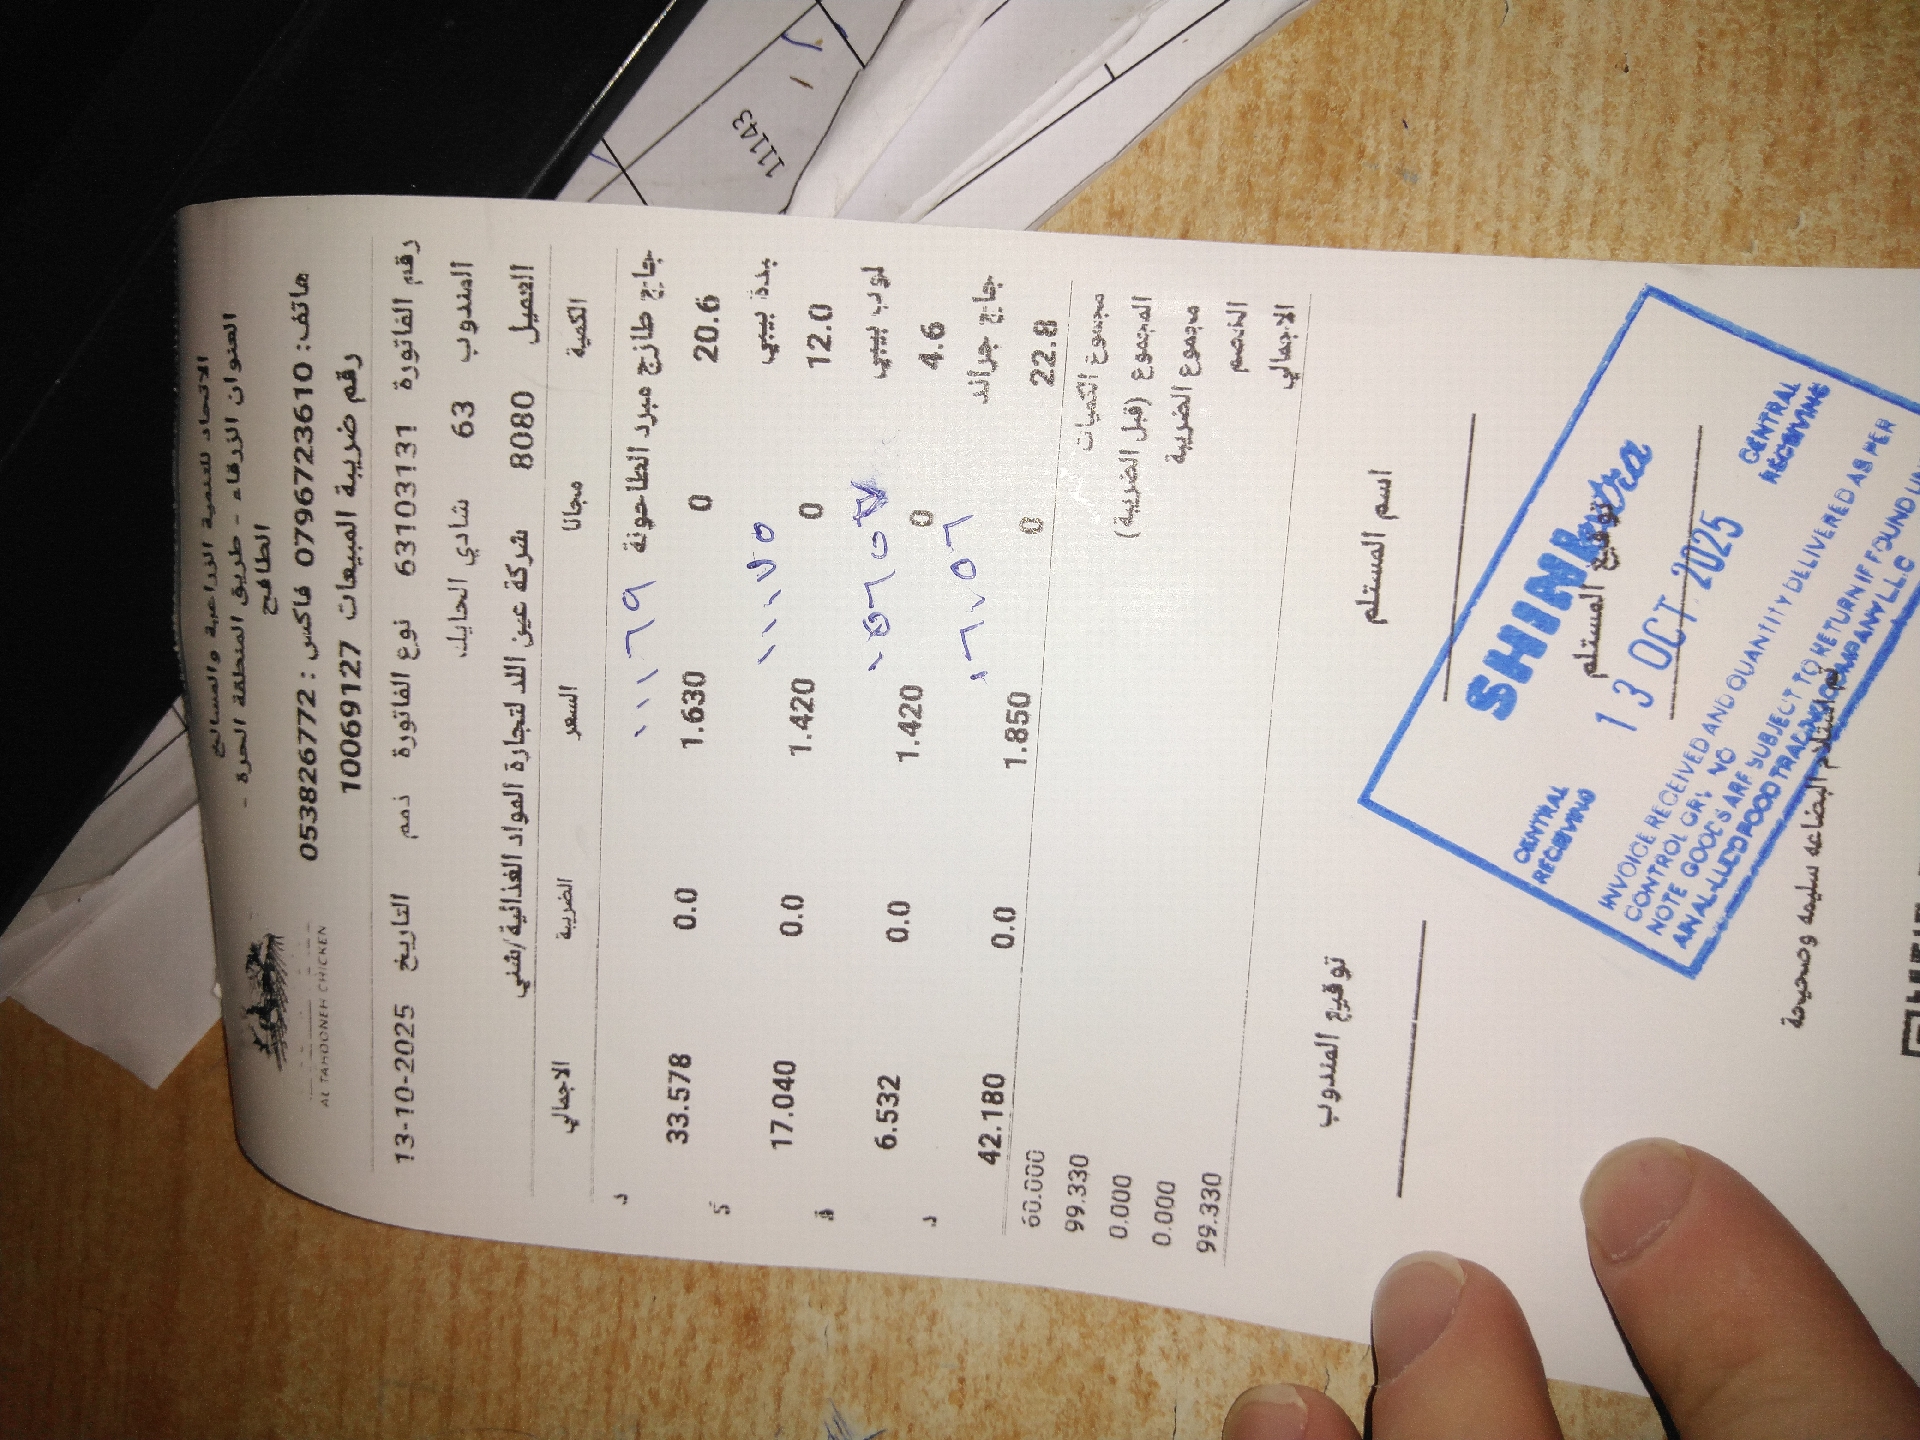 الاتحاد للتنمية الزراعية والمسالخ
العنوان الزرقاء - طريق المنطقة الحرة -
الطافح
هاتف: 0796723610 فاكس: 053826772
رقم ضريبة المبيعات 10069127
AL TAHOONEH CHICKEN
رقم الفاتورة 63103131 نوع الفاتورة ذمم التاريخ 13-10-2025
المندوب 63 شادي الحايك
العميل 8080 شركة عين الد لتجارة المواد الغذائية/شني
الكمية مجانا السعر الضريبة الاجمالي
جاج طازج مبرد الطاحونة ١١١٦٩ د
20.6 0 1.630 0.0 33.578
١١١٧٥
12.0 0 1.420 0.0 17.040
4.6 0 1.420 0.0 6.532
جاج جراند ١٦٠٥٦ د
22.8 0 1.850 0.0 42.180
مجموع الكميات 60.000
المجموع (قبل الضريبة) 99.330
مجموع الضريبة 0.000
الخصم 0.000
الاجمالي 99.330
اسم المستلم توقيع المندوب
توقيع المستلم
SHINE
CENTRAL RECEIVING 13 OCT 2025 CENTRAL RECEIVING
INVOICE RECEIVED AND QUANTITY DELIVERED AS PER
CONTROL GRV NO
NOTE GOODS ARE SUBJECT TO RETURN IF FOUND
FOOD TRADING COMPANY L.L.C
تم استلام البضاعه سليمه وصحيحة
11143